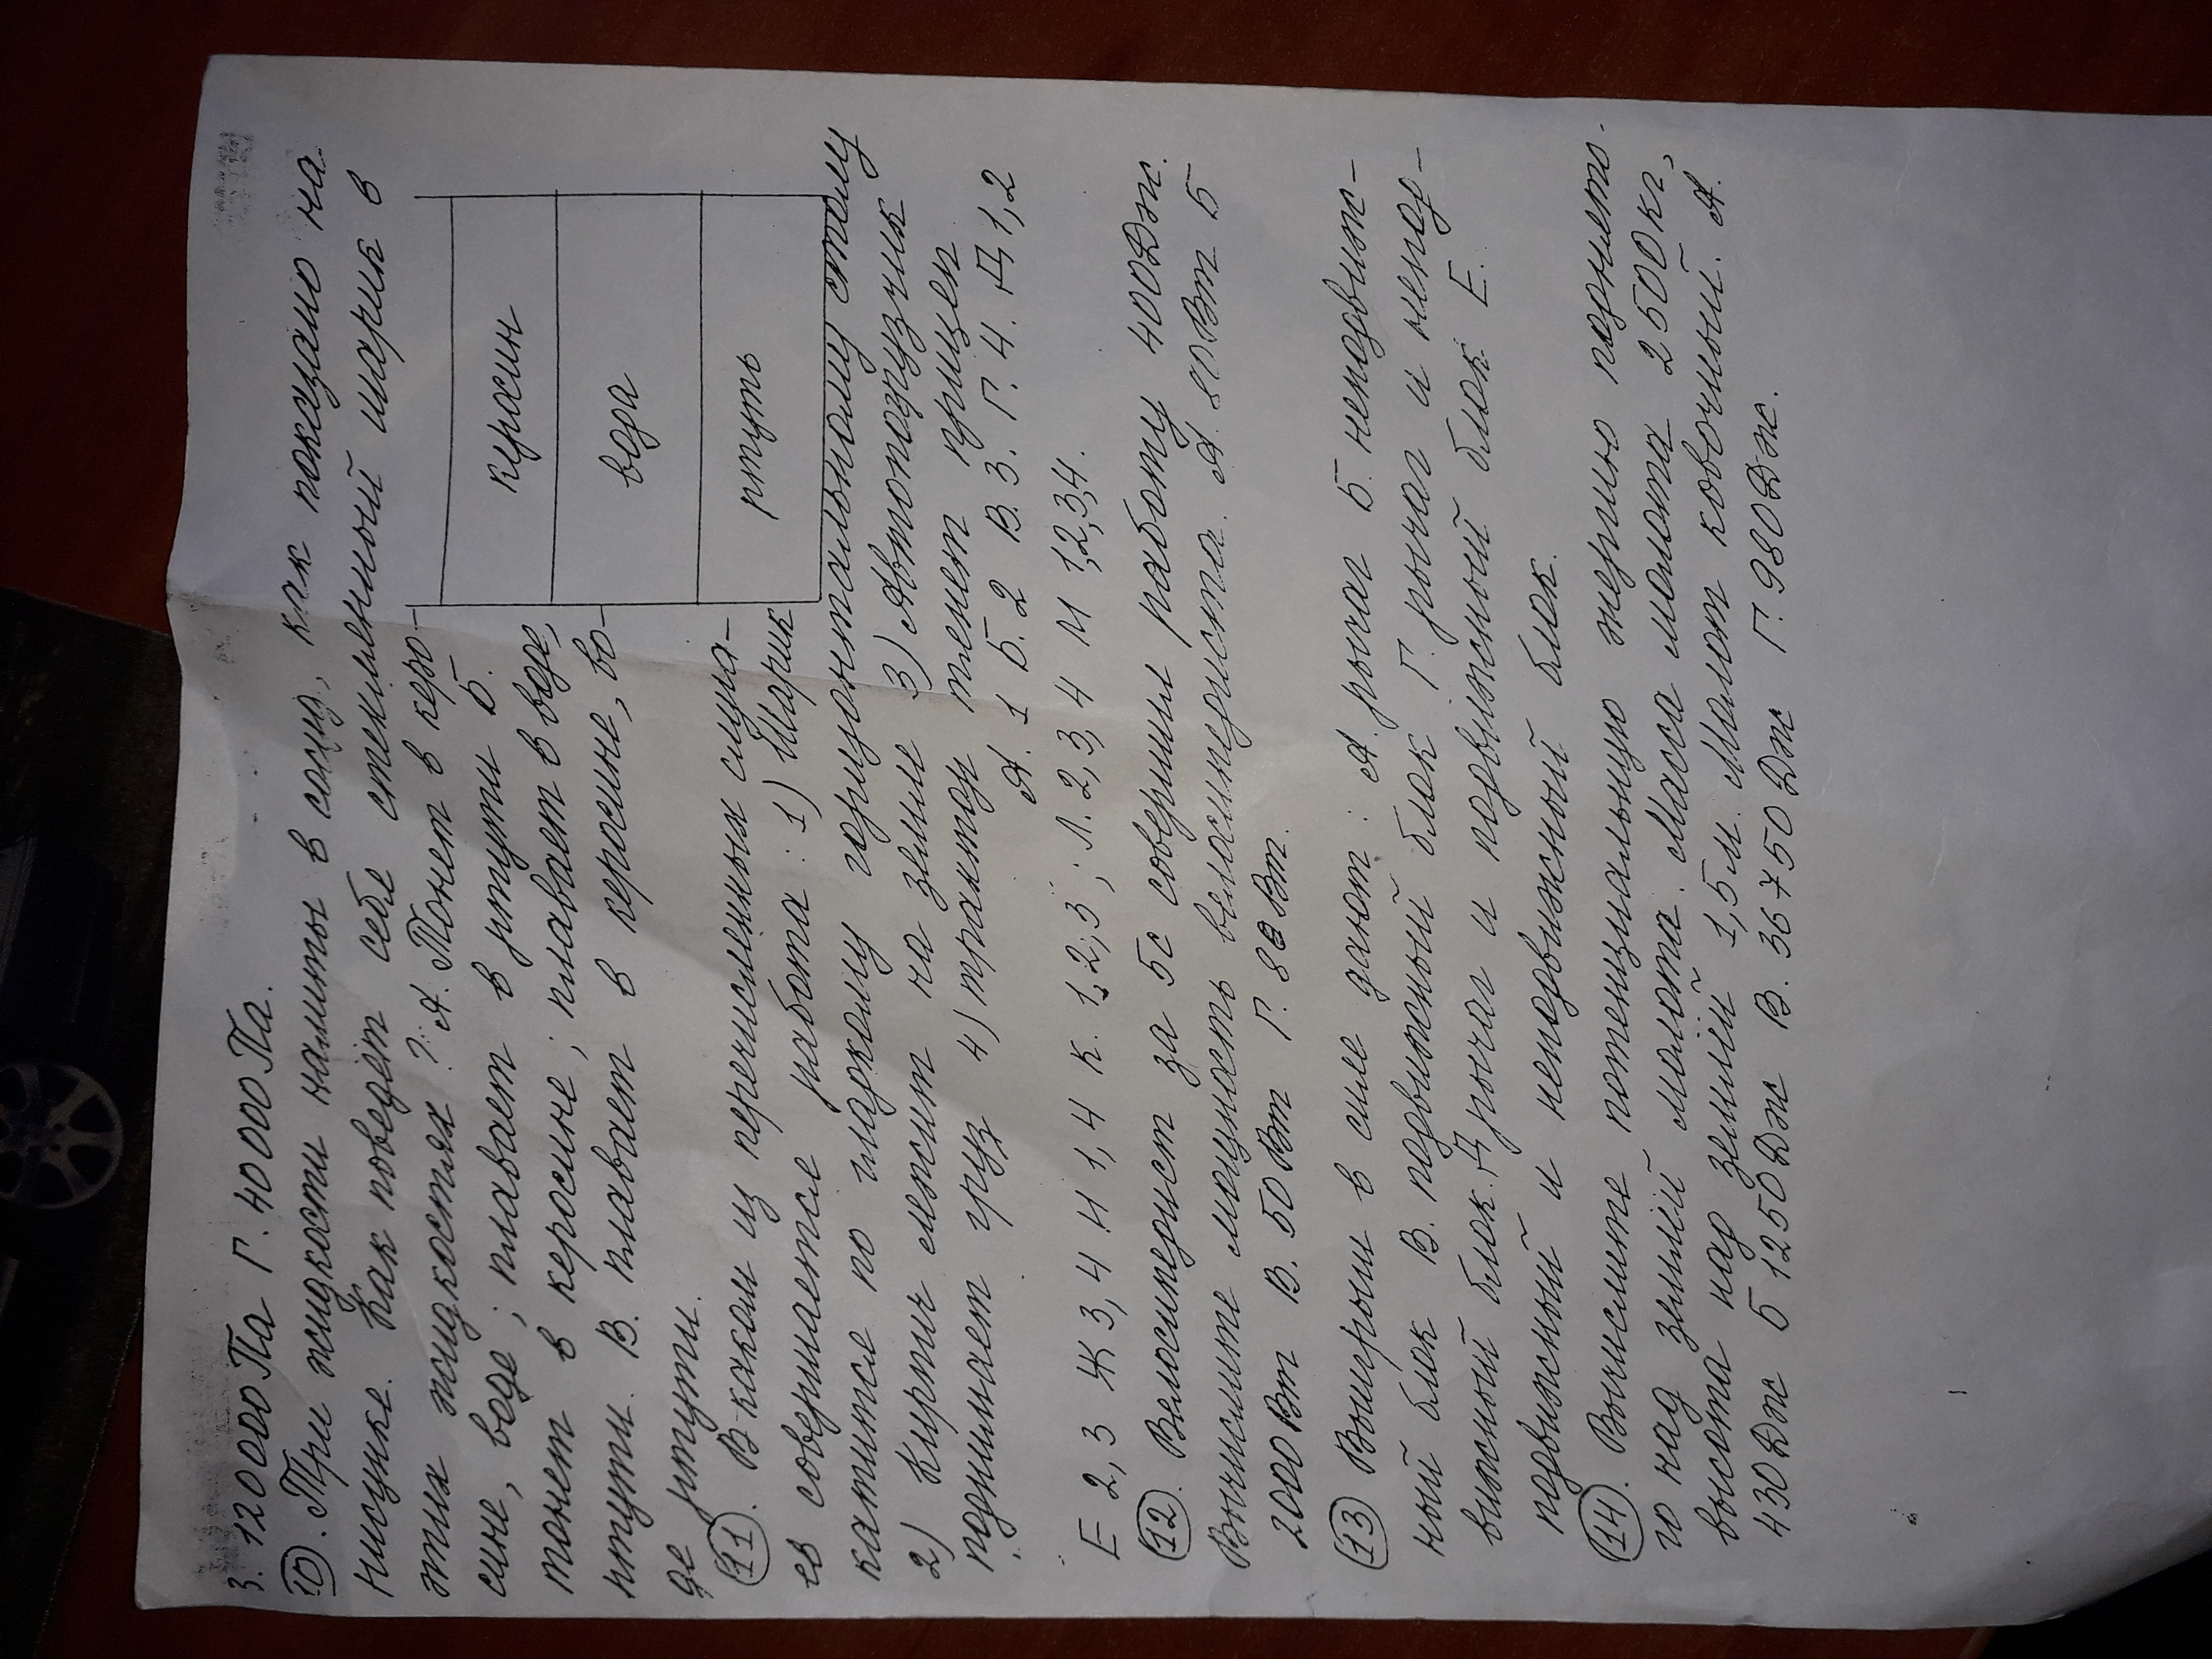 3. 12000Па Г. 40000Па.
10. Три жидкости налиты в сосуд, как показано на
рисунке. Как поведёт себя стеклянный шарик в
этих жидкостях? А. Тонет в керо-
сине, воде; плавает в ртути Б.
тонет в керосине; плавает в воде,
ртути. В. плавает в керосине, во-
де ртути.
керосин
вода
ртуть
11. В каком из перечисленных случа-
ев совершается работа: 1) Шарик
катится по гладкому горизонтальному столу
2) Кирпич лежит на земле 3) Автопогрузчик
поднимает груз 4) трактор тянет прицеп
А. 1 Б. 2 В. 3. Г. 4. Д 1,2
Е 2,3 Ж 3,4 И 1,4 К. 1,2,3; Л. 2,3,4 М 1,2,3,4.
12. Велосипедист за 5с совершил работу 400Дж.
Вычислите мощность велосипедиста. А. 80Вт Б
2000Вт В. 50Вт Г. 88Вт.
13 Выигрыш в силе дают: А. рычаг Б. неподвиж-
ный блок В. подвижный блок Г. рычаг и непод-
вижный блок. Д рычаг и подвижный блок Е.
подвижный и неподвижный блок.
14. Вычислите потенциальную энергию поднято-
го над землёй молота. Масса молота 2500кг,
высота над землёй 1,5м. Молот ковочный. А.
430Дж Б 1250Дж В. 36750Дж Г. 980Дж.